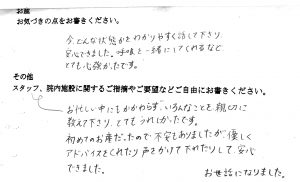 お産
お気づきの点をお書きください。
今、どんな状態かをわかりやすく話して下さり、
安心できました。呼吸を一緒にしてくれるなど、
とても心強かったです。
その他
スタッフ、院内施設に関するご指摘やご要望などご自由にお書きください。
お忙しい中にもかかわらず、いろんなことも親切に
教えて下さり、とてもうれしかったです。
初めてのお産だったので不安もありましたが、優しく
アドバイスをくれたり声をかけて下されたりして、安心
できました。
お世話になりました。